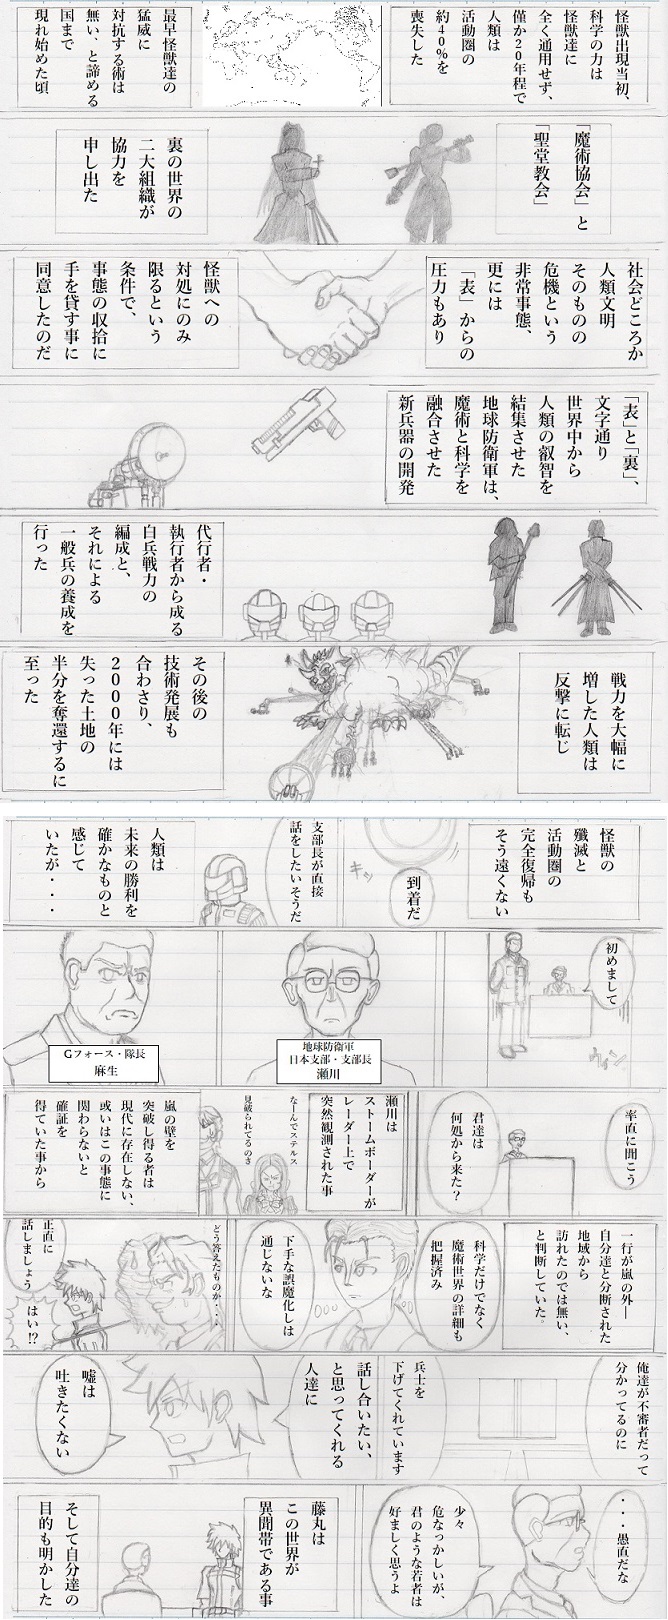 怪獣出現当初、
科学の力は
怪獣達に
全く通用せず、
僅か20年程で
人類は
活動圏の
約40%を
喪失した
最早怪獣達の
猛威に
対抗する術は
無い、と諦める
国まで
現れ始めた頃
「魔術協会」と
「聖堂教会」
裏の世界の
二大組織が
協力を
申し出た
社会どころか
人類文明
そのものの
危機という
非常事態、
更には
「表」からの
圧力もあり
怪獣への
対処にのみ
限るという
条件で、
事態の収拾に
手を貸す事に
同意したのだ
「表」と「裏」、
文字通り
世界中から
人類の叡智を
結集させた
地球防衛軍は、
魔術と科学を
融合させた
新兵器の開発
代行者・
執行者から成る
白兵戦力の
編成と、
それによる
一般兵の養成を
行った
戦力を大幅に
増した人類は
反撃に転じ
その後の
技術発展も
合わさり、
2000年には
失った土地の
半分を奪還するに
至った
怪獣の
殲滅と
活動圏の
完全復帰も
そう遠くない
到着だ
キッ
支部長が直接
話をしたいそうだ
人類は
未来の勝利を
確かなものと
感じて
いたが・・・・
初めまして
ウィン
地球防衛軍
日本支部・支部長
瀬川
Gフォース・隊長
麻生
率直に聞こう
君達は
何処から来た?
瀬川は
ストームボーダーが
レーダー上で
突然観測された事
なーんでステルス
見破られてるのさ
嵐の壁を
突破し得る者は
現代に存在しない、
或いはこの事態に
関わらないと
確証を
得ていた事から
一行が嵐の外―
自分達と分断された
地域から
訪れたのでは無い、
と判断していた。
科学だけでなく
魔術世界の詳細も
把握済み
下手な誤魔化しは
通じないな
どう答えたものか・・・
正直に
話しましょう
はい!?
俺達が不審者だって
分かってるのに
兵士を
下げてくれています
話し合いたい、
と思ってくれる
人達に
嘘は
吐きたくない
・・・愚直だな
少々
危なっかしいが、
君のような若者は
好ましく思うよ
藤丸は
この世界が
異聞帯である事
そして自分達の
目的も明かした